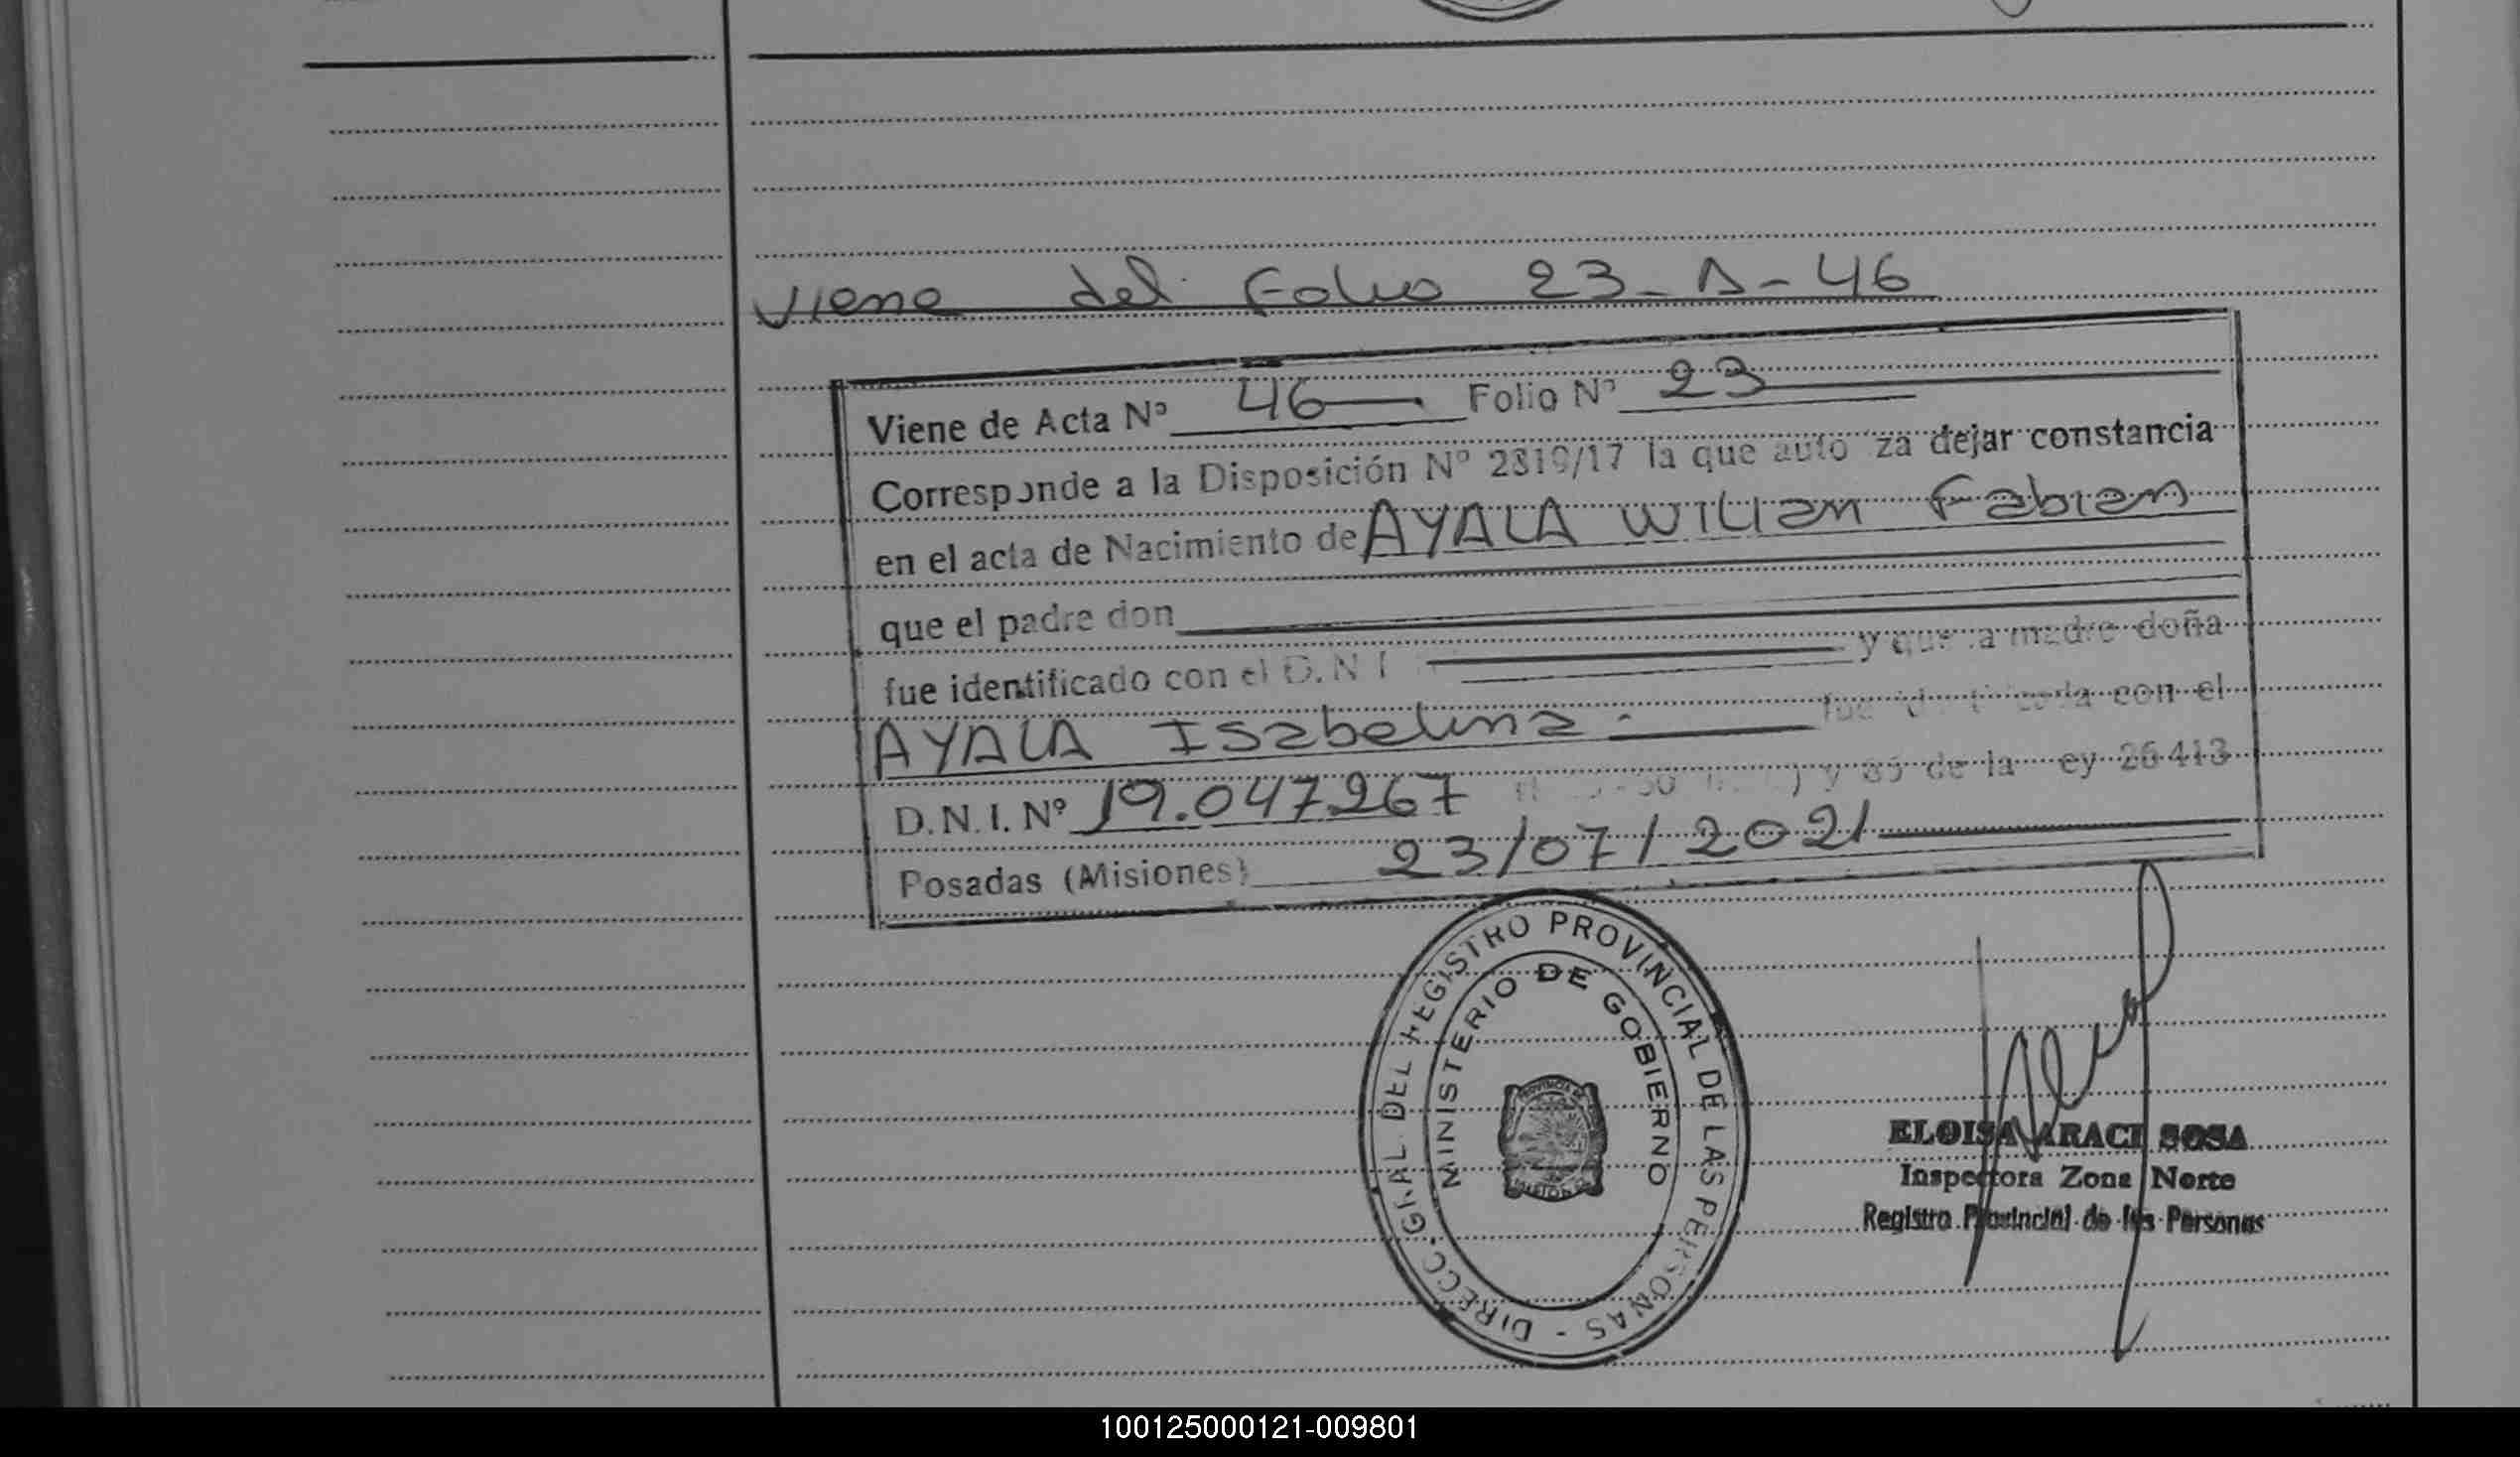 Viene del Folio 23-A-46
Viene de Acta Nº 46 Folio Nº 23
Corresponde a la Disposición Nº 2819/17 la que autoriza dejar constancia
en el acta de Nacimiento de AYALA Wilian Fabian
que el padre don
fue identificado con el D.N.I y que la madre doña
AYALA Isabelina.- fue identificada con el
D.N.I. Nº 19.047267 y 85 de la ley 26413
Posadas (Misiones) 23/07/2021
DIRECC. GRAL. DEL REGISTRO PROVINCIAL DE LAS PERSONAS -
MINISTERIO DE GOBIERNO
ELOISA ARACI SOSA
Inspectora Zona Norte
Registro Provincial de las Personas
100125000121-009801